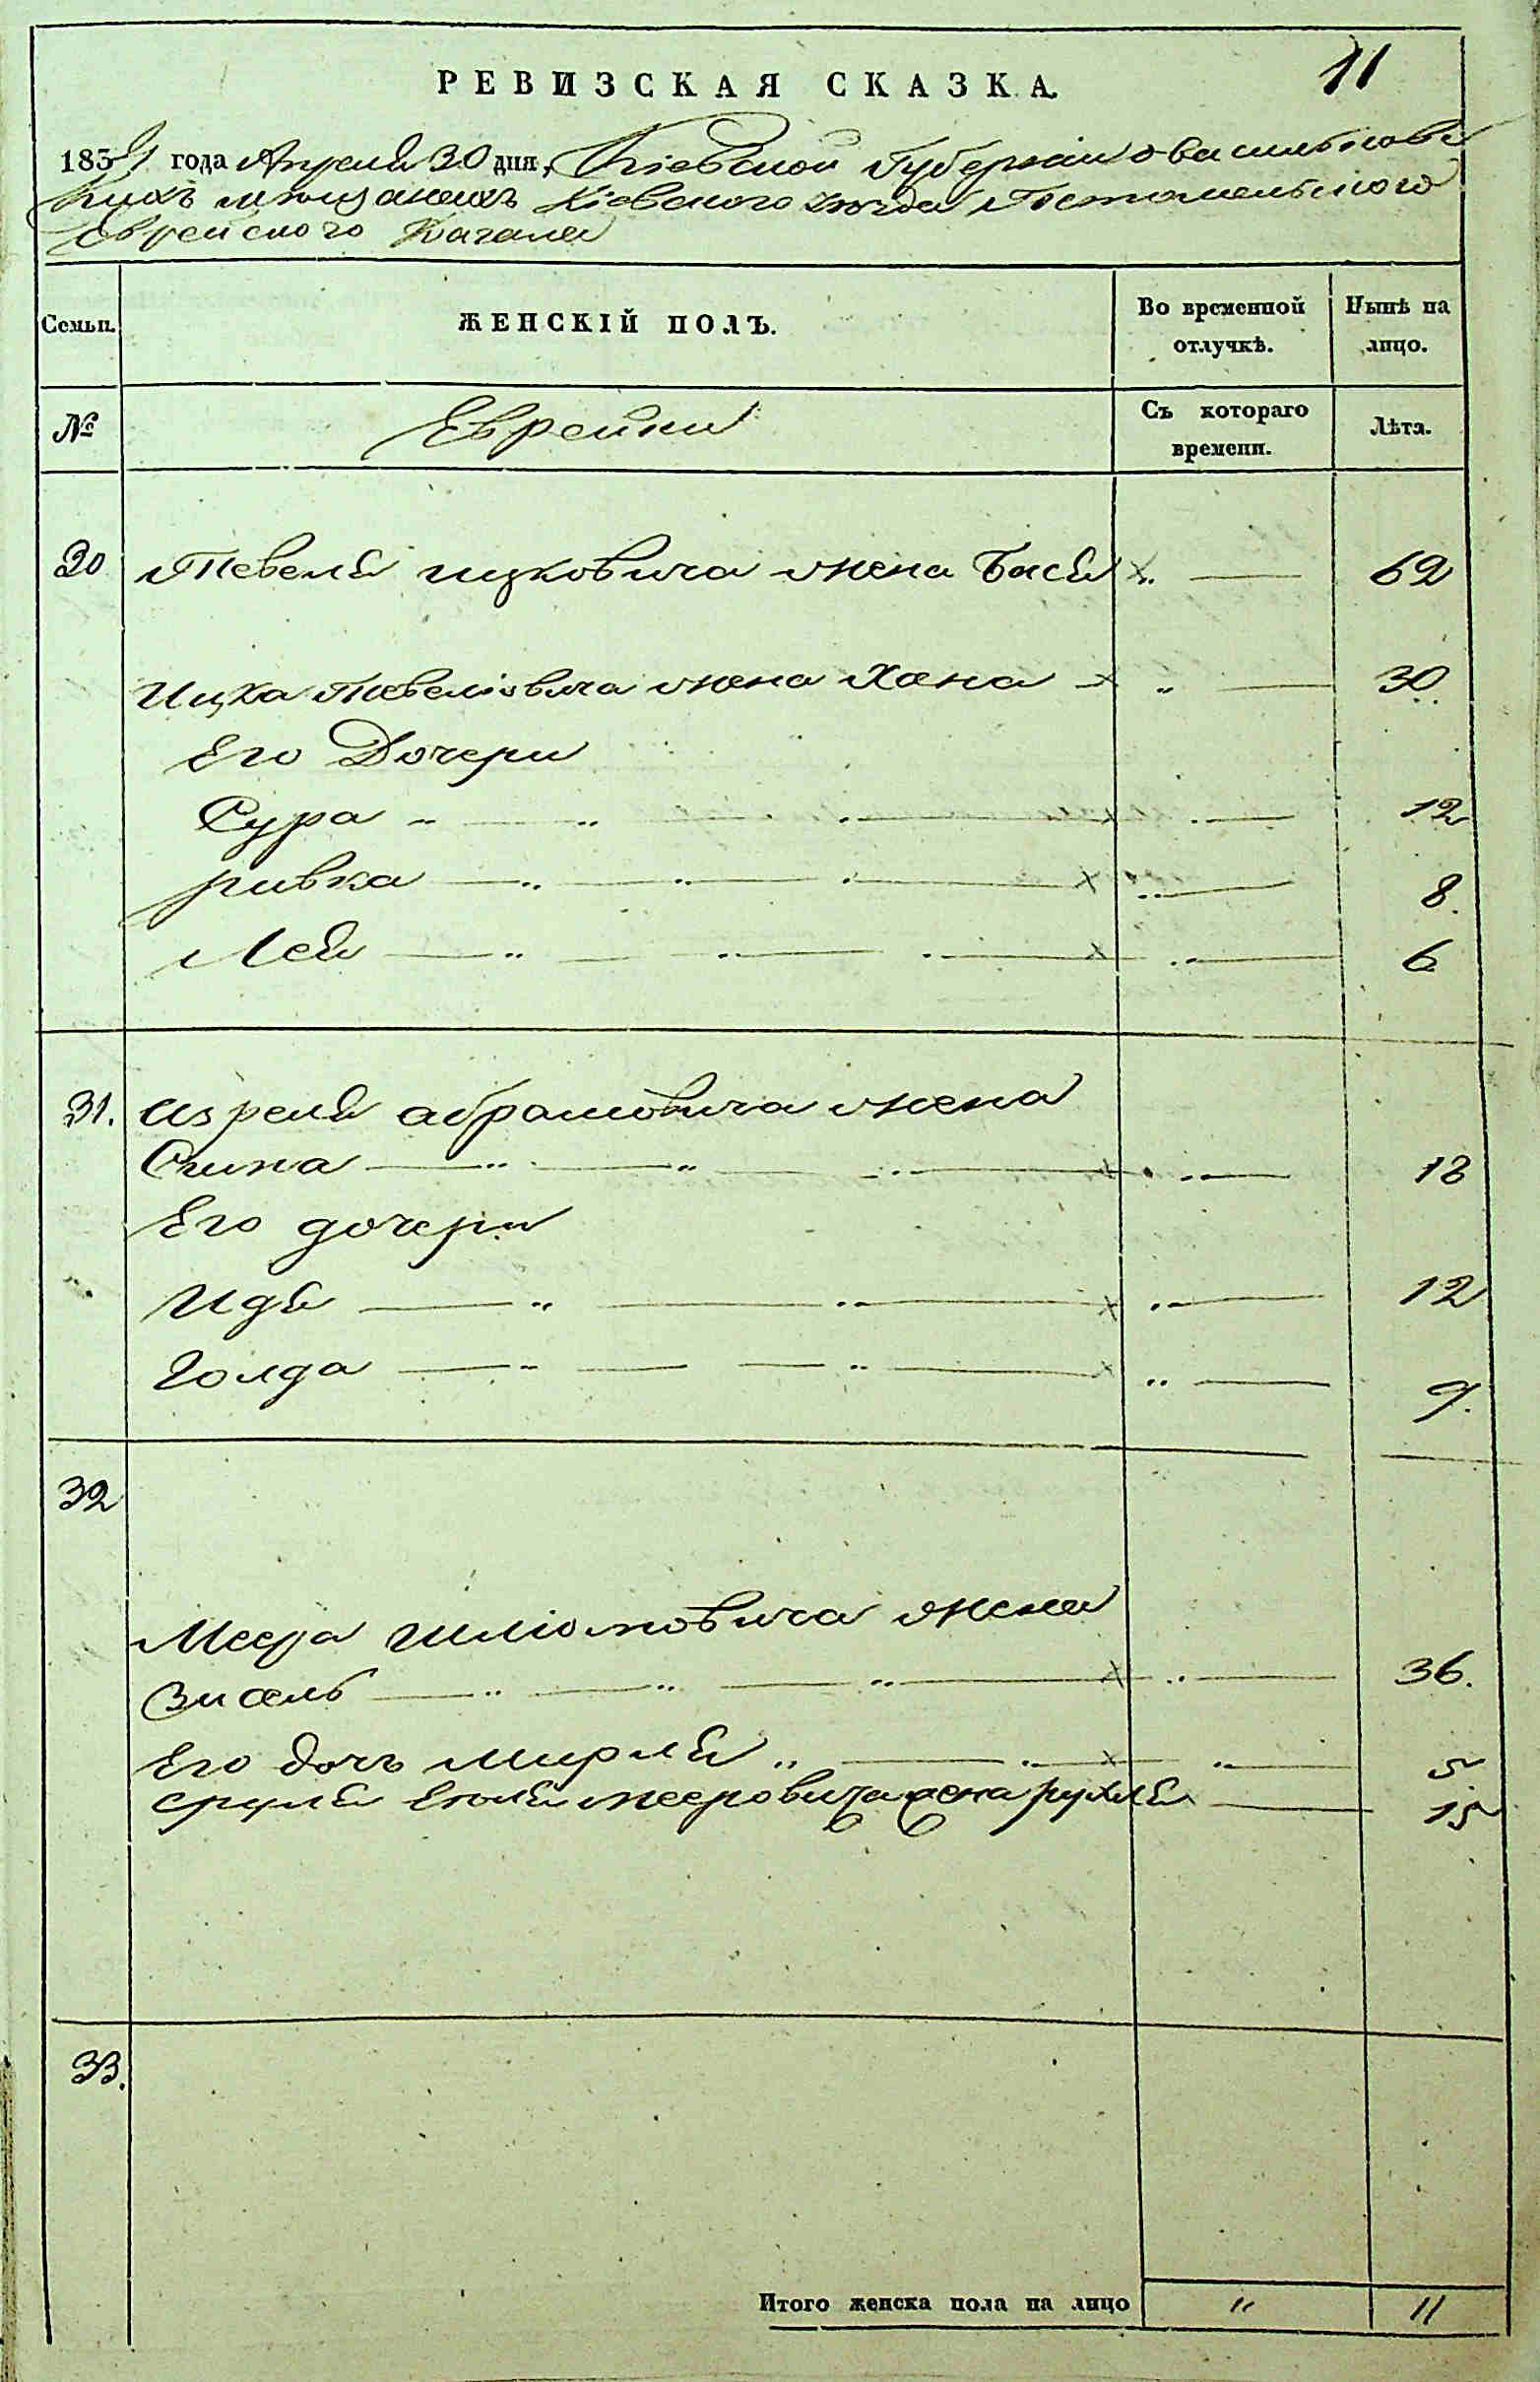 11
РЕВИЗСКАЯ СКАЗКА.
1834 года Апреля 30 дня, Кіевской Губерніи о васильков
скихъ мещанехъ Кіевского уезда Гостомельского
Еврейского Кагала
Семьи. ЖЕНСКІЙ ПОЛЪ. Во временной отлучкѣ. Нынѣ на лицо.
№ Еврейки Съ котораго времени. Лѣта.
30 Тевеля ицковича жена Бася „ — 62
Ицка Тевеліовича жена Хана „ — 30
Его Дочери
Сура „ — „ — 12
ривка — „ — „ — 8.
Лея — „ — „ — 6
31. Азреля абрамовича жена
— „ — „ — 18
Его дочери
Идя — „ — „ — 12
Голда — „ — „ — 9.
32
Меера шліомовича жена
Зисель — „ — „ — 36.
Его дочь Мирля „ — „ — 5
Сруля мееровича жена рухля — 15
33.
Итого женска пола на лицо „ 11